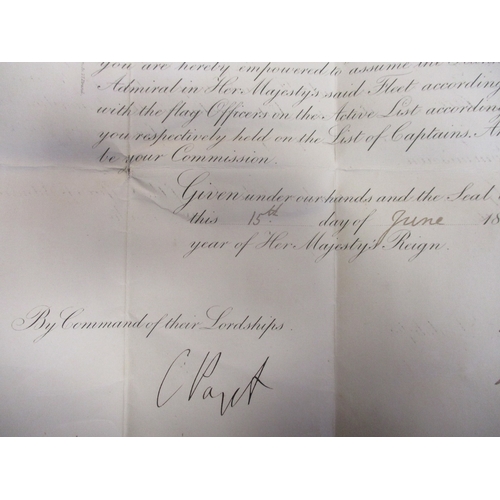 you are hereby empowered to assume the
Admiral in Her Majesty's said Fleet according
with the flag Officers on the Active List according
you respectively held on the List of Captains.
be your Commission.
Given under our hands and the Seal
this 15th day of June 18
year of Her Majesty's Reign.
By Command of their Lordships.
C Paget